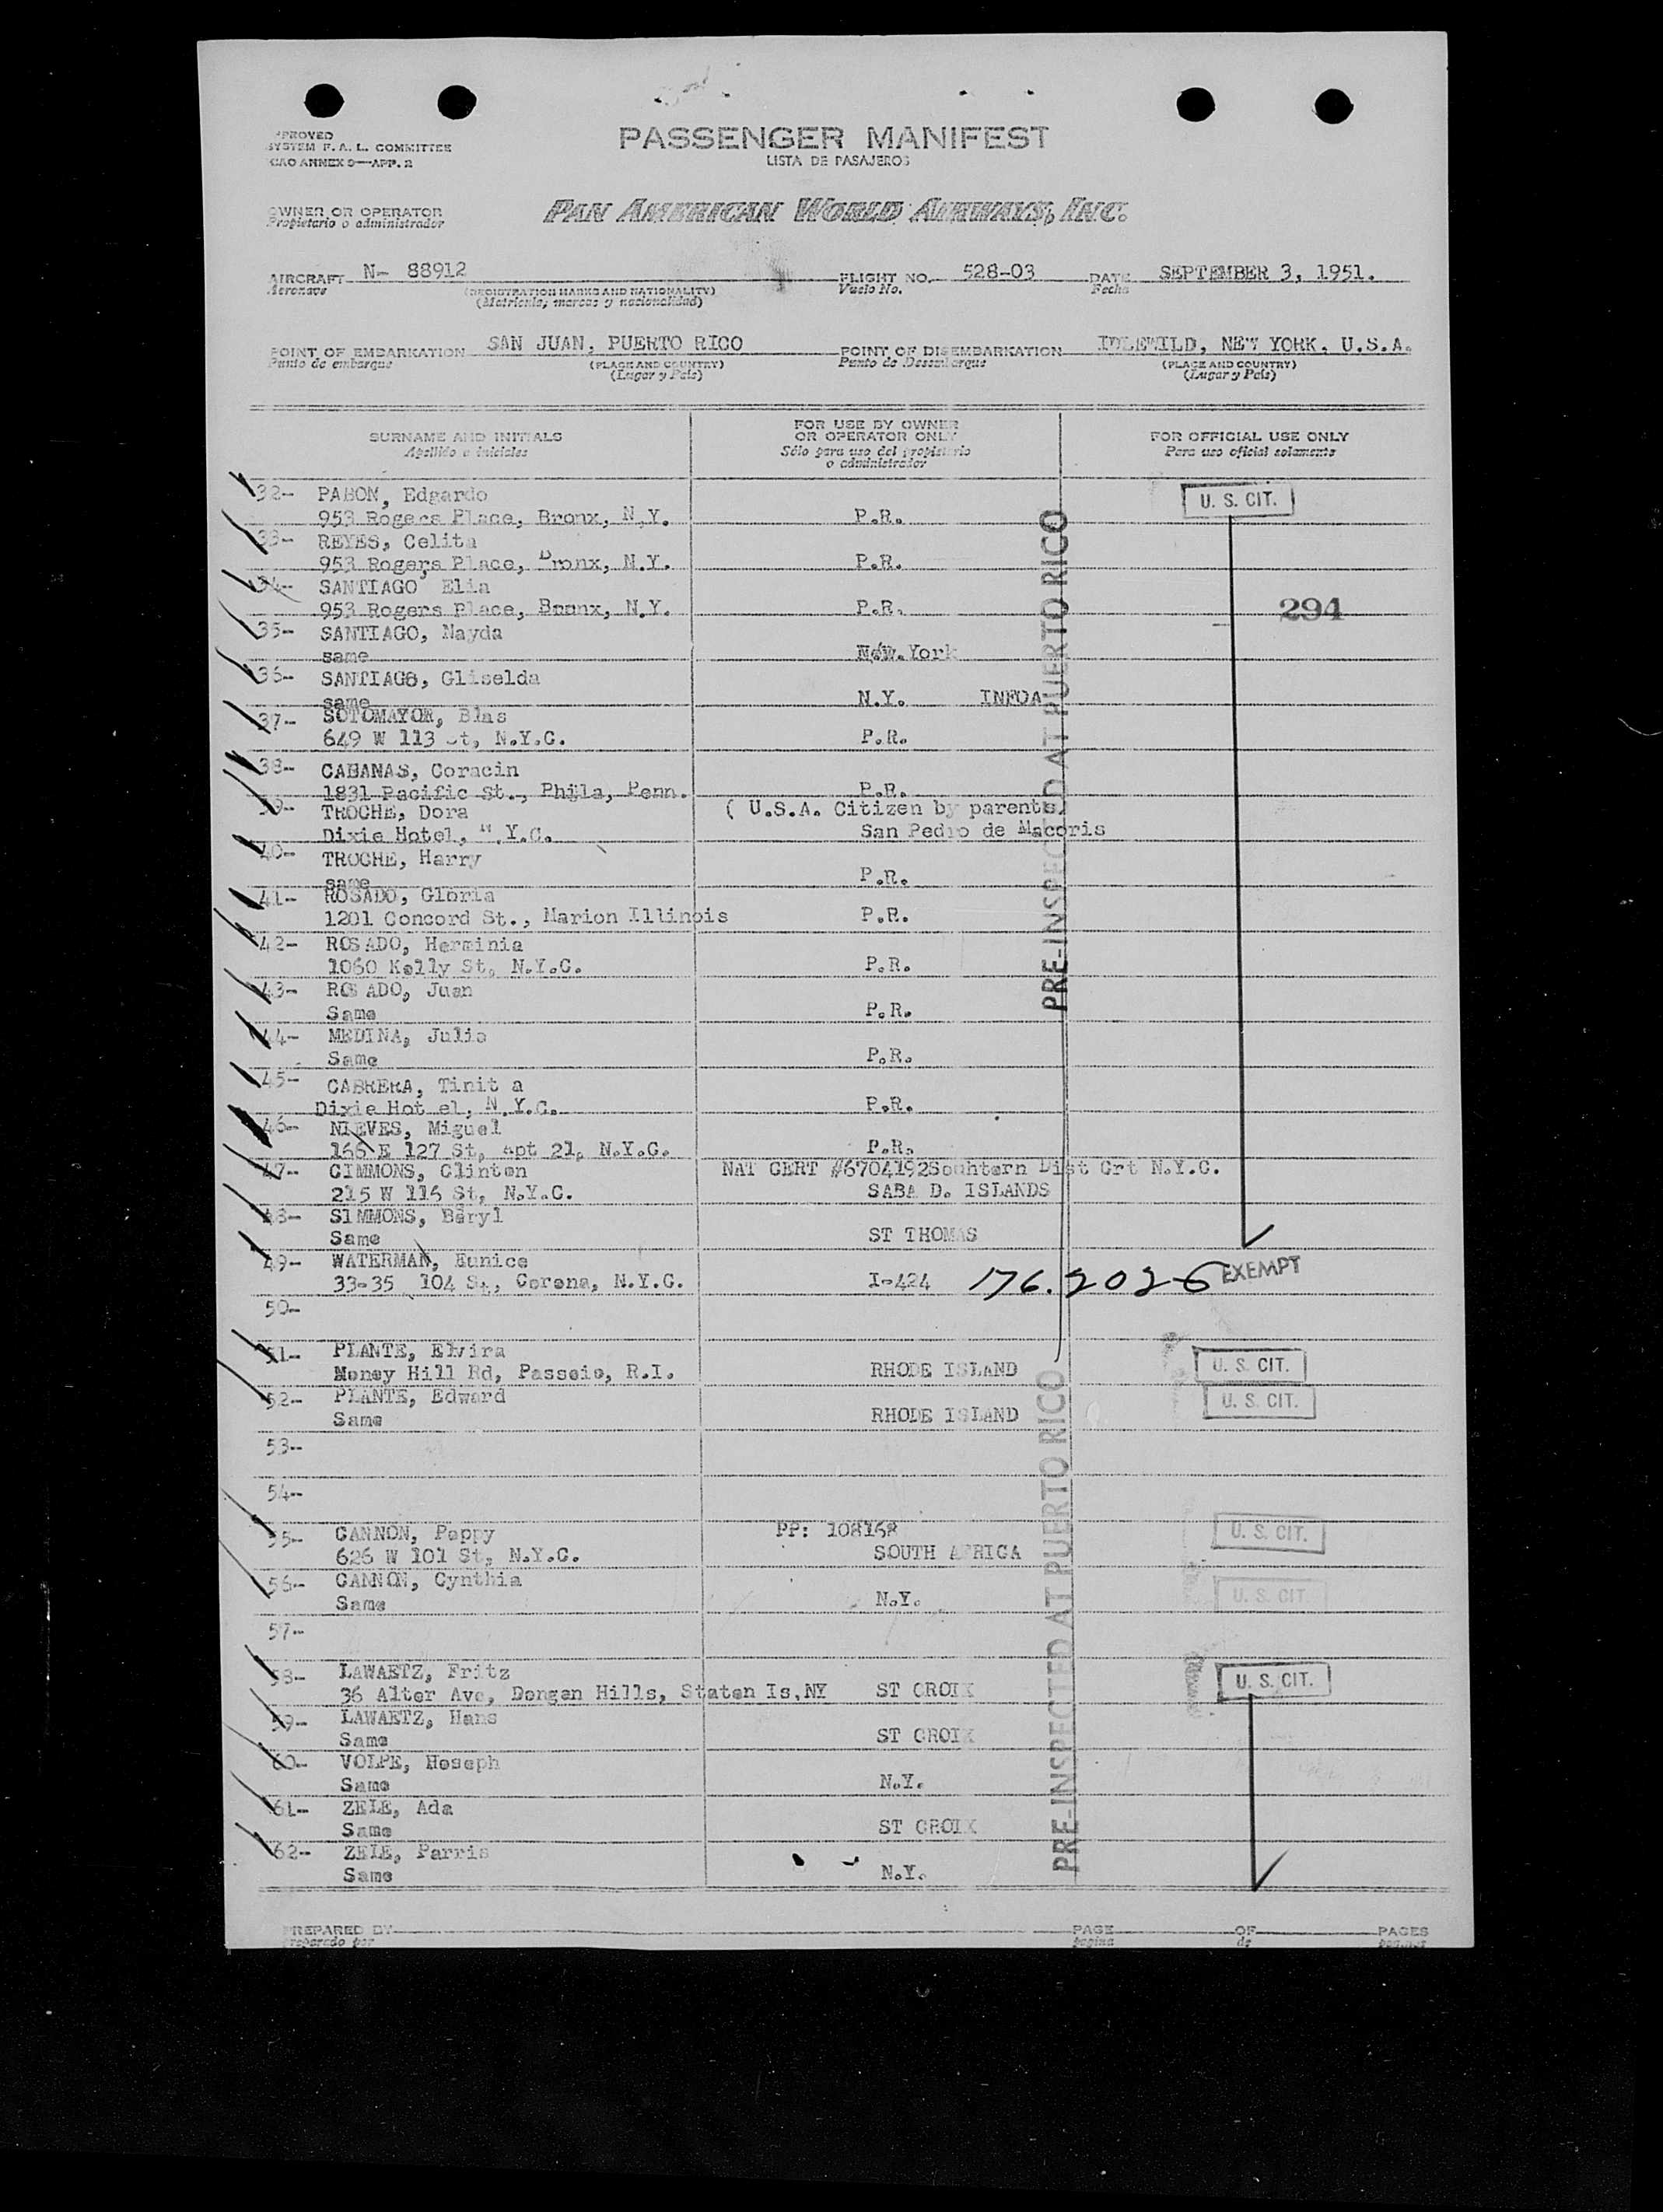 APPROVED
SYSTEM F. A. L. COMMITTEE
ICAO ANNEX 9—APP. 2
PASSENGER MANIFEST
LISTA DE PASAJEROS
OWNER OR OPERATOR
Propietario o administrador
PAN AMERICAN WORLD AIRWAYS, INC.
AIRCRAFT N- 88912 FLIGHT NO. 528-03 DATE SEPTEMBER 3, 1951.
Aeronave (REGISTRATION MARKS AND NATIONALITY) Vuelo No. Fecha
(Matricula, marcas y nacionalidad)
POINT OF EMBARKATION SAN JUAN, PUERTO RICO POINT OF DISEMBARKATION IDLEWILD, NEW YORK, U.S.A.
Punto de embarque (PLACE AND COUNTRY) Punto de Desembarque (PLACE AND COUNTRY)
(Lugar y País) (Lugar y País)
SURNAME AND INITIALS
Apellido e iniciales
FOR USE BY OWNER
OR OPERATOR ONLY
Sólo para uso del propietario
o administrador
FOR OFFICIAL USE ONLY
Para uso oficial solamente
32- PABON, Edgardo U. S. CIT.
953 Rogers Place, Bronx, N.Y. P.R.
33- REYES, Celita
953 Rogers Place, Bronx, N.Y. P.R.
34- SANTIAGO, Elia
953 Rogers Place, Bronx, N.Y. P.R. 294
35- SANTIAGO, Nayda
same New York
36- SANTIAGO, Gliselda
same N.Y. INFOA
37- SOTOMAYOR, Blas
649 W 113 St, N.Y.C. P.R.
38- CABANAS, Coracin
1831 Pacific St., Phila, Penn. P.R.
39- TROCHE, Dora ( U.S.A. Citizen by parents)
Dixie Hotel, N.Y.C. San Pedro de Macoris
40- TROCHE, Harry
same P.R.
41- ROSADO, Gloria
1201 Concord St., Marion Illinois P.R.
42- ROSADO, Herminia
1060 Kelly St, N.Y.C. P.R.
43- ROSADO, Juan
Same P.R.
44- MEDINA, Julio
Same P.R.
45- CABRERA, Tinit a
Dixie Hot el, N.Y.C. P.R.
46- NIEVES, Miguel
168 E 127 St, apt 21, N.Y.C. P.R.
47- CIMMONS, Clinton NAT CERT #6704192Souhtern Dist Crt N.Y.C.
215 W 115 St, N.Y.C. SABA D. ISLANDS
48- SIMMONS, Beryl
Same ST THOMAS
49- WATERMAN, Eunice
33-35 104 St, Corona, N.Y.C. I-424 176.2026 EXEMPT
50-
51- PLANTE, Elvira
Money Hill Rd, Passeio, R.I. RHODE ISLAND U. S. CIT.
52- PLANTE, Edward U. S. CIT.
Same RHODE ISLAND
53-
54-
55- CANNON, Peppy PP: 108168 U. S. CIT.
626 W 101 St, N.Y.C. SOUTH AFRICA
56- CANNON, Cynthia
Same N.Y. U. S. CIT.
57-
58- LAWAETZ, Fritz U. S. CIT.
36 Alter Ave, Dongan Hills, Staten Is, NY ST CROIX
59- LAWAETZ, Hans
Same ST CROIX
60- VOLPE, Hoseph
Same N.Y.
61- ZELE, Ada
Same ST CROIX
62- ZELE, Parris
Same N.Y.
PRE-INSPECTED AT PUERTO RICO
PRE-INSPECTED AT PUERTO RICO
PREPARED BY PAGE OF PAGES
Preparado por pagina de paginas